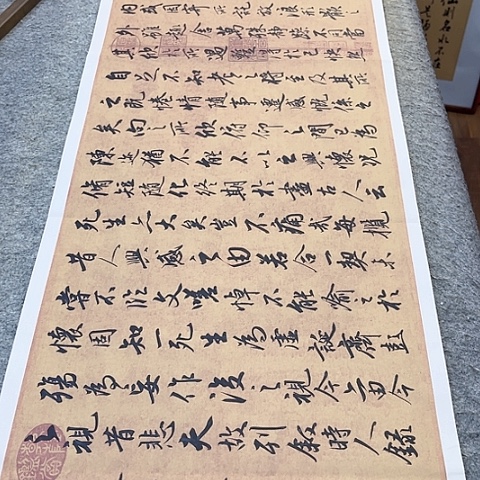 因或因寄所託放浪形骸之
外雖趣舍萬殊靜躁不同當
其欣於所遇暫得於己快然
自足不知老之將至及其所
之既惓情隨事遷感慨係之
矣向之所欣俛仰之間已為
陳迹猶不能不以之興懷況
脩短隨化終期於盡古人云
死生亦大矣豈不痛哉每攬
昔人興感之由若合一契未
嘗不臨文嗟悼不能喻之於
懷固知一死生為虛誕齊彭
殤為妄作後之視今亦由今
之視昔悲夫故列敘時人錄